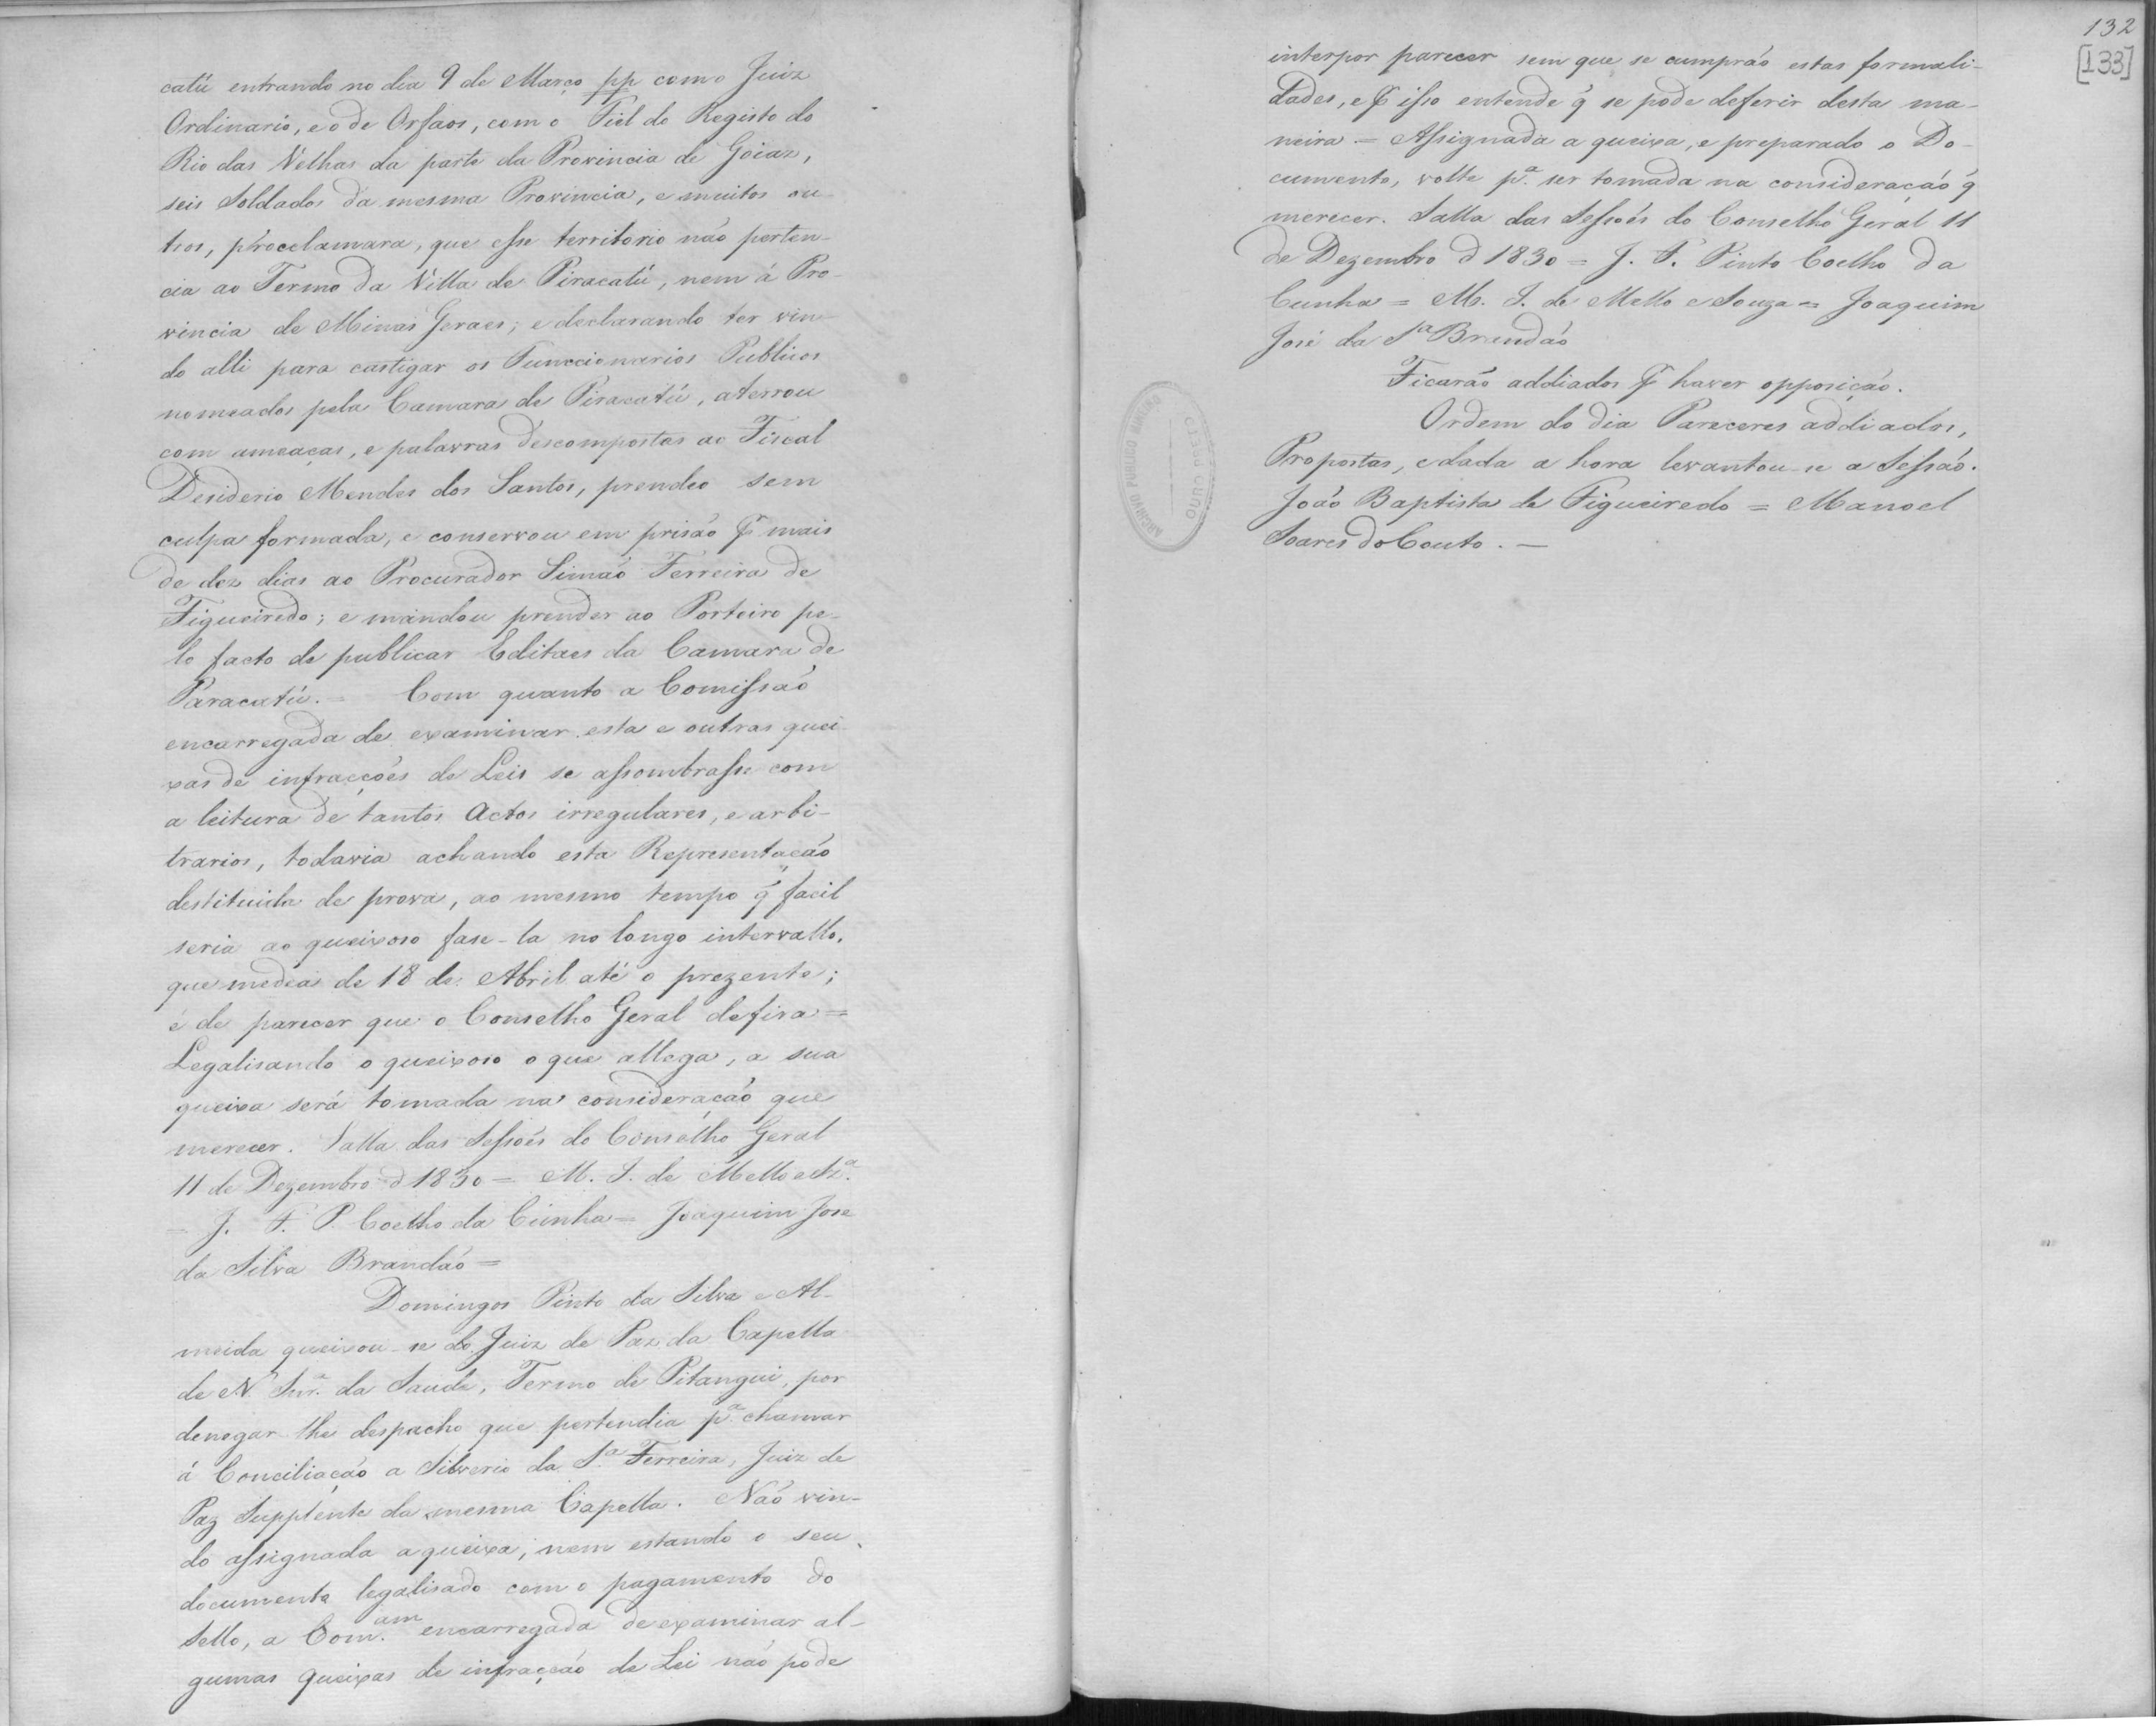 catú entrando no dia 9 de Março pp com o Juiz
Ordinario, e o de Orfaos, com o Fiel do Registo do
Rio das Velhas da parte da Provincia de Goiaz,
seis Soldados da mesma Provincia, e muitos ou-
tros, proclamara, que esse territorio não perten-
cia ao Termo da Villa de Piracatú, nem á Pro-
vincia de Minas Geraes; e declarando ter vin-
do alli para castigar os Funccionarios Publicos
nomeados pela Camara de Piracatú, aterrou
com ameaças, e palavras descompostas ao Fiscal
Desiderio Mendes dos Santos, prendeo sem
culpa formada, e conservou em prisão pr mais
de dez dias ao Procurador Simão Ferreira de
Figueiredo; e mandou prender ao Porteiro pe-
lo facto de publicar Editaes da Camara de
Paracatú. = Com quanto a Comissão
encarregada de examinar esta e outras quei-
xas de infracções de Leis se assombrasse com
a leitura de tantos Actos irregulares, e arbi-
trarios, todavia achando esta Representação
destituida de prova, ao mesmo tempo q facil
seria ao queixoso fase-la no longo intervallo,
que medea de 18 de Abril até o prezente;
é de parecer que o Conselho Geral defira =
Legalisando o queixoso o que allega, a sua
queixa será tomada na consideração que
merecer. Salla das Sessões do Conselho Geral
11 de Dezembro d 1830 = M. I. de Mello e Sza.
= J. F. P. Coelho da Cunha = Joaquim Jose
da Silva Brandão =
Domingos Pinto da Silva e Al-
meida queixou-se do Juiz de Paz da Capella
de N. Snra. da Saude, Termo de Pitangui, por
denegar-lhe despacho que pertendia pa. chamar
á Conciliação a Silverio da Sa. Ferreira, Juiz de
Paz Supplente da mesma Capella. Não vin-
do assignada a queixa, nem estando o seu
documento legalisado com o pagamento do
Sello, a Com.am encarregada de examinar al-
gumas queixas de infracção de Lei não pode
132
[133]
interpor parecer sem que se cumprão estas formali-
dades, e pr isso entende q se pode deferir desta ma-
neira = Assignada a queixa, e preparado o Do-
cumento, volte pa. ser tomada na consideração q
merecer. Salla das Sessões do Conselho Geral 11
de Dezembro d 1830 = J. F. Pinto Coelho da
Cunha = M. I. de Mello e Souza = Joaquim
José da Sa Brandão
Ficarão addiados pr haver opposição.
Ordem do dia Pareceres addiados,
Propostas, e dada a hora levantou-se a Sessão.
João Baptista de Figueiredo = Manoel
Soares do Couto. —
ARCHIVO PUBLICO MINEIRO
OURO PRETO